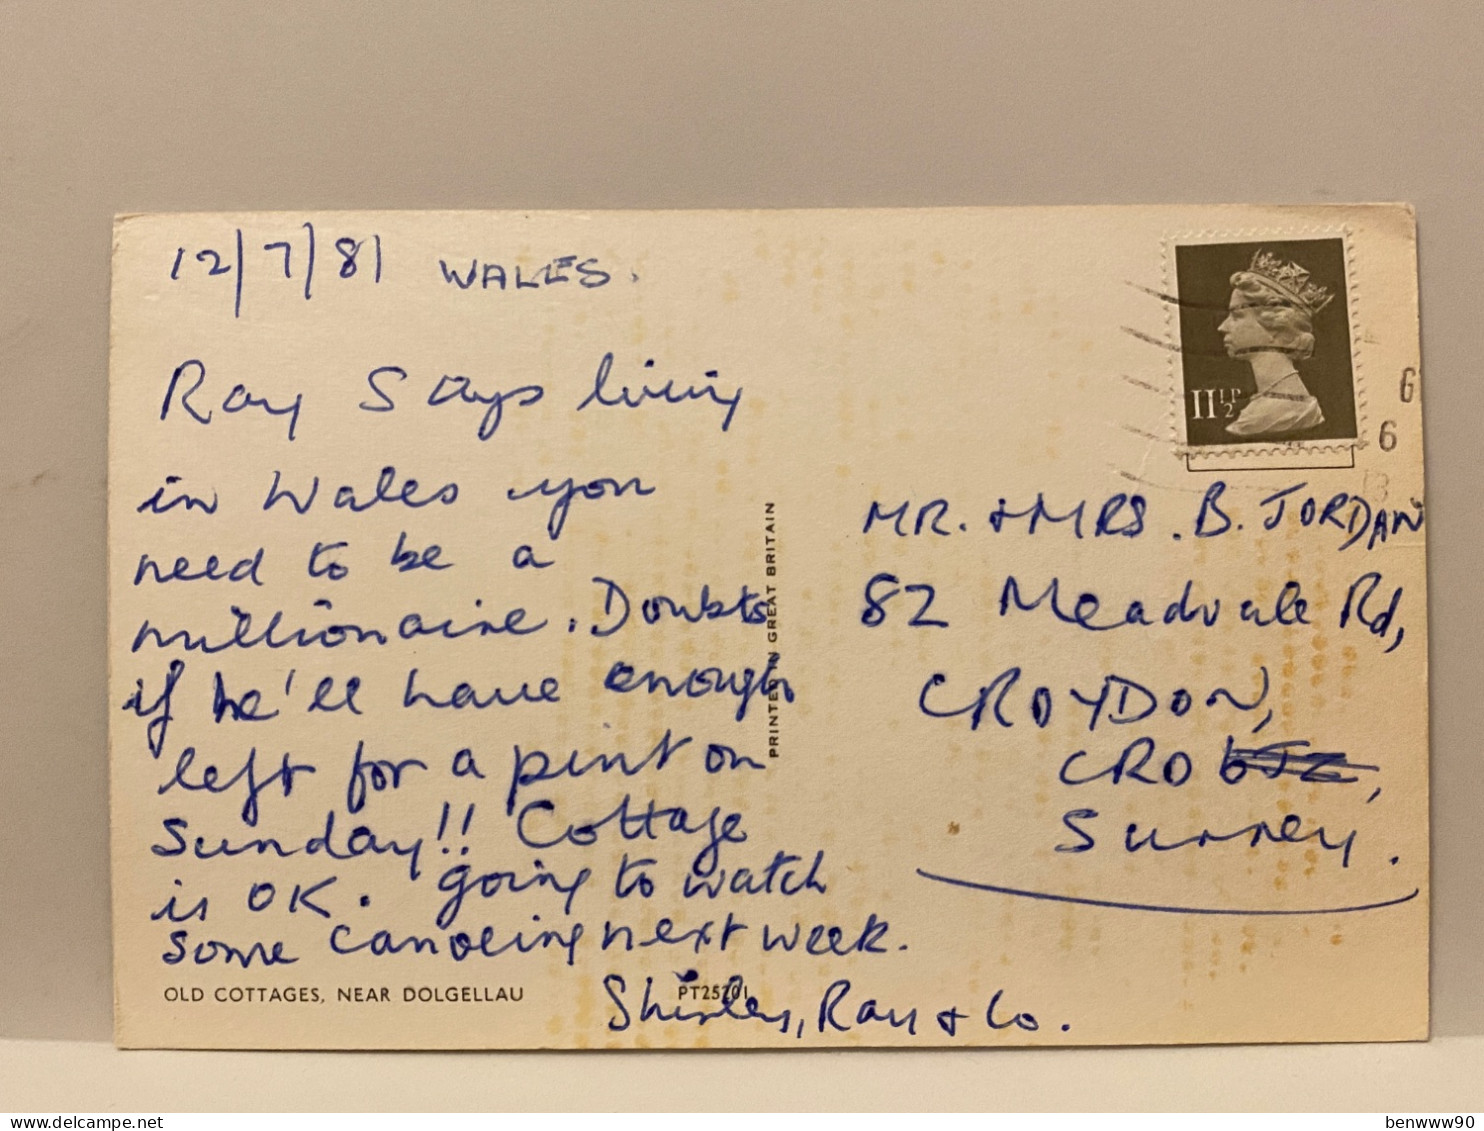 12/7/81 WALES.
Ray Says living
in Wales you
need to be a
millionaire. Doubts
if he'll have enough
left for a pint on
Sunday!! Cottage
is OK. going to watch
some canoeing next week.
Shirley, Ray & Co.
OLD COTTAGES, NEAR DOLGELLAU
PT25201
PRINTED IN GREAT BRITAIN
11½P
6
6
MR. & MRS. B. JORDAN
82 Meadvale Rd,
CROYDON,
CRO
Surrey.
benwww90